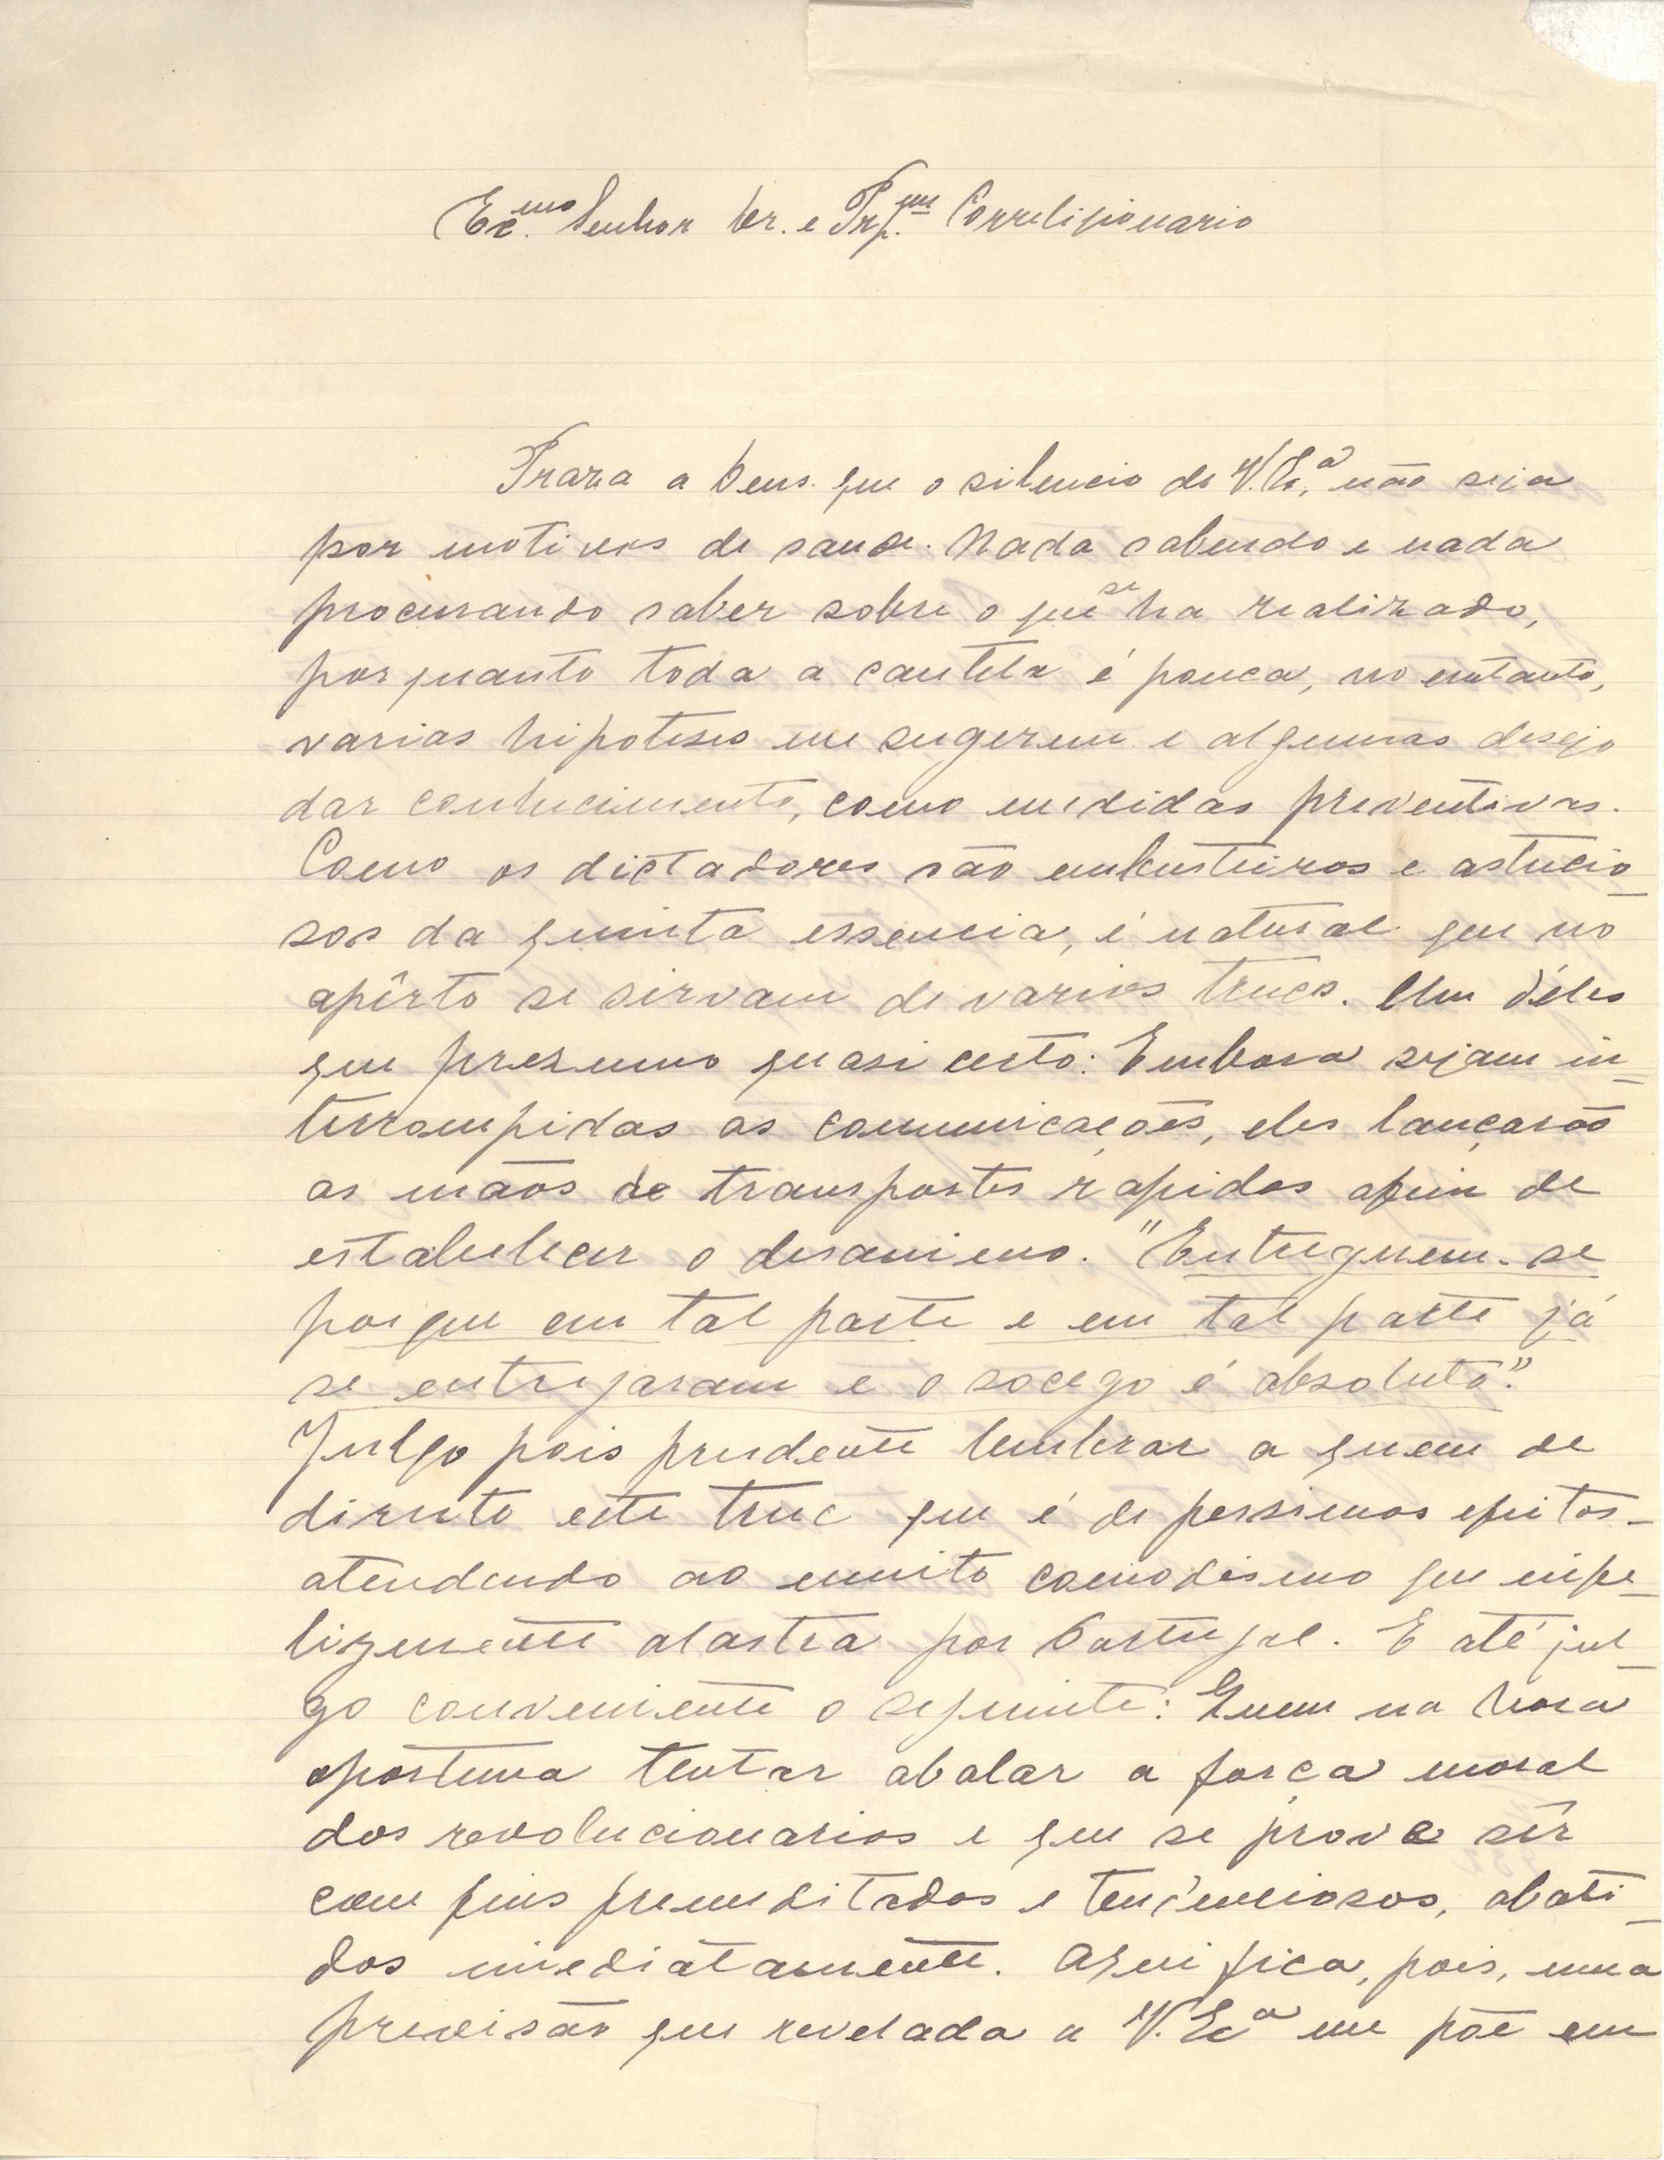 Ex.mo Senhor Dr. e Prp.mo Correligionario
Praza a Deus que o silencio de V. Ex.a não seja
por motivos de saude. Nada sabendo e nada
procurando saber sobre o que se ha realizado,
porquanto toda a cautela é pouca, no entanto,
varias hipoteses me sugerem e algumas desejo
dar conhecimento, como medidas preventivas.
Como os dictadores são embusteiros e astucio-
sos da quinta essencia, é natural que no
apêrto se sirvam de varios trucs. Um déles
que prezumo quasi certo: Embora sejam in-
terrompidas as comunicações, eles lançarão
as mãos de transportes rapidos afim de
estabelecer o desanimo. "Entreguem-se
porque em tal parte e em tal parte já
se entregaram e o socego é absoluto".
Julgo pois prudente lembrar a quem de
direito este truc que é de pessimos efeitos-
atendendo ao muito comodismo que infe-
lizmente alastra por Portugal. E até jul-
go conveniente o seguinte: Quem na hora
oportuna tentar abalar a força moral
dos revolucionarios e que se prove sêr
com fins premeditados e tendenciosos, abati-
dos imediatamente. Aqui fica, pois, uma
previsão que revelada a V. Ex.a me põe em